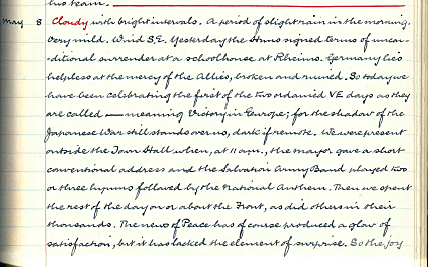 his team.
May 8 Cloudy with bright intervals. A period of slight rain in the morning.
Very mild. Wind S.E. Yesterday the Huns signed terms of uncon-
ditional surrender at a schoolhouse at Rheims. Germany lies
helpless at the mercy of the Allies, broken and ruined. So today we
have been celebrating the first of the two ordained VE days as they
are called — meaning Victory in Europe; for the shadow of the
Japanese War still stands over us, dark if remote. We were present
outside the Town Hall when, at 11 a.m., the mayor gave a short
conventional address and the Salvation Army Band played two
or three hymns followed by the National Anthem. Then we spent
the rest of the day on or about the Front, as did others in their
thousands. The news of Peace has of course produced a glow of
satisfaction, but it has lacked the element of surprise. So the joy